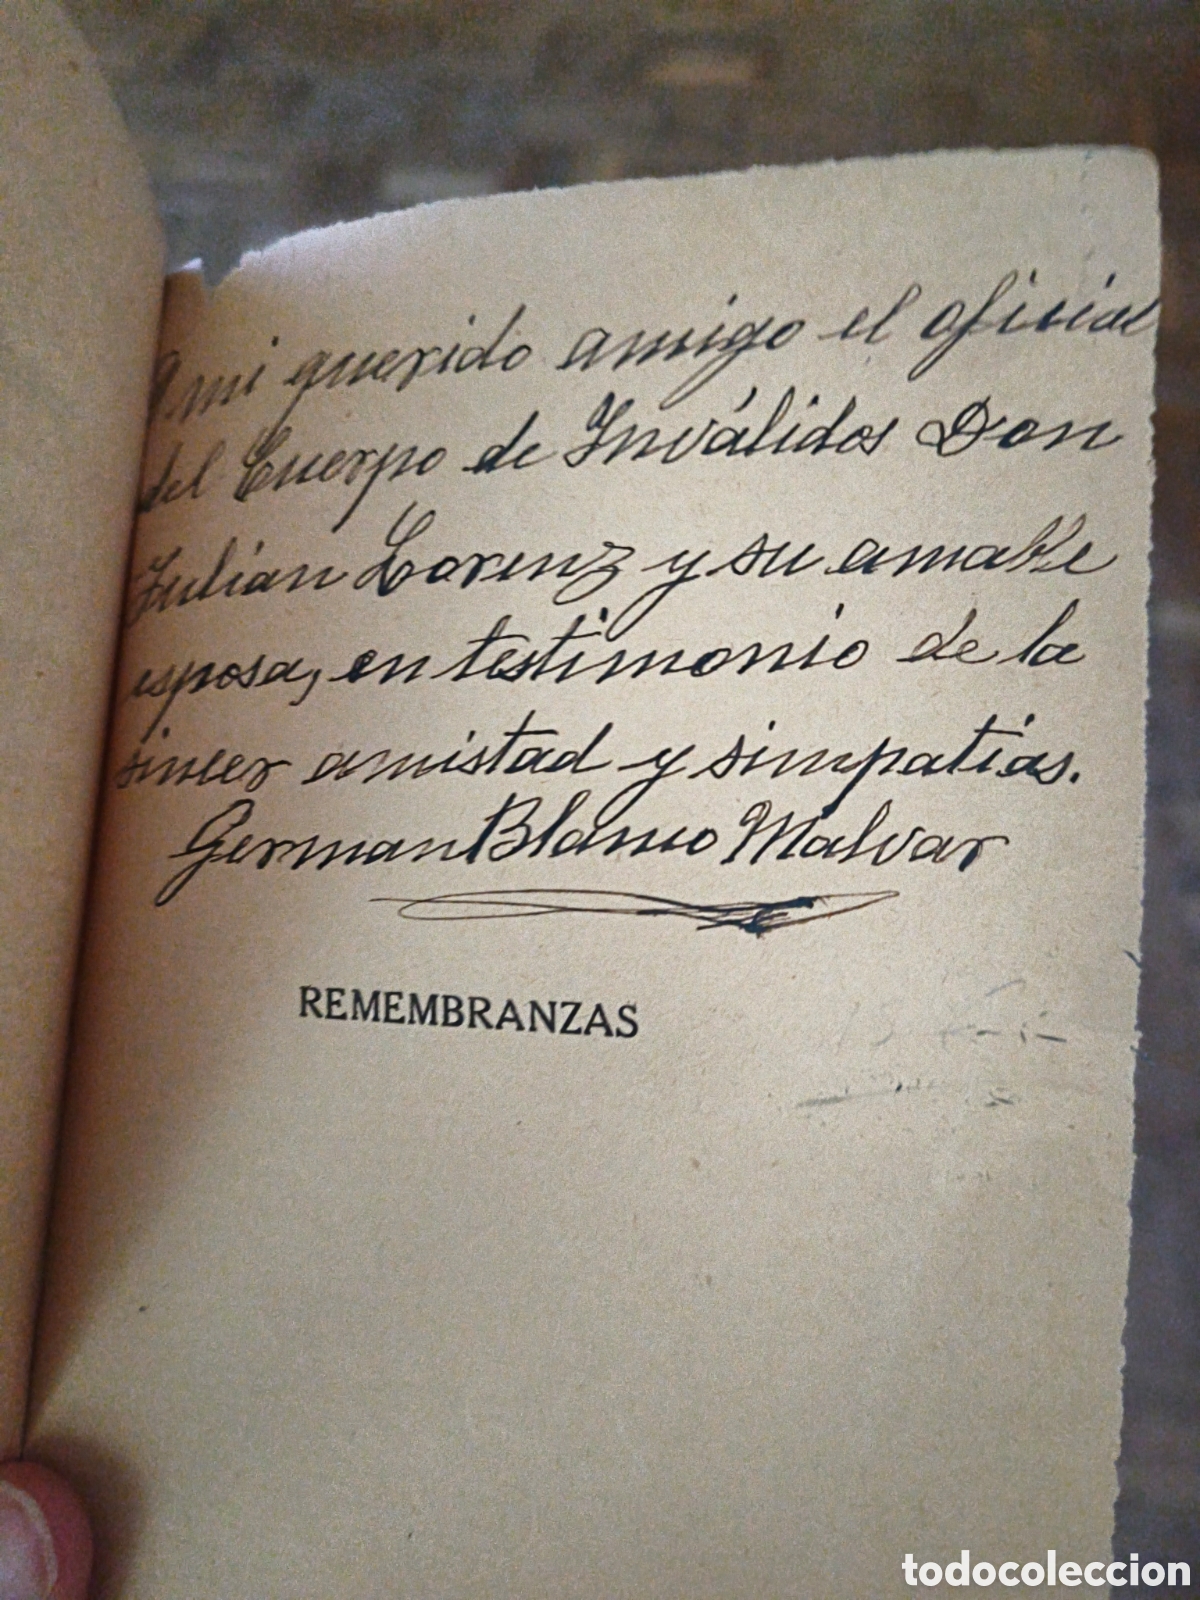 A mi querido amigo el oficial
del Cuerpo de Inválidos Don
Julian Lorenz y su amable
esposa, en testimonio de la
sincer amistad y simpatias.
German Blanco Malvar
REMEMBRANZAS
todocoleccion